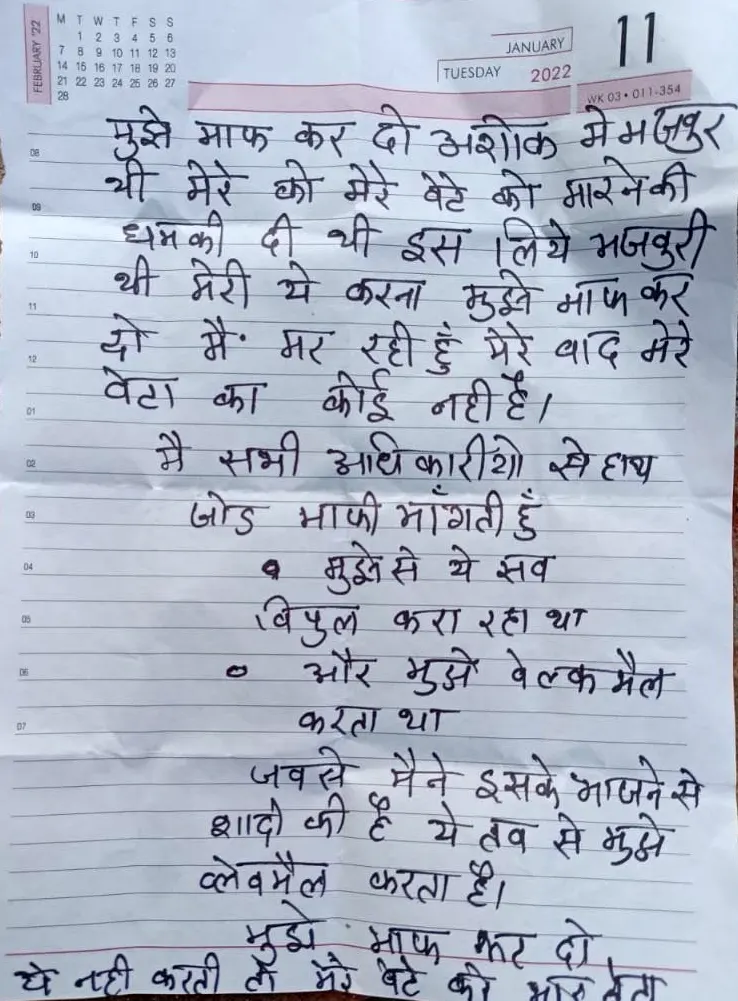 FEBRUARY '22
M T W T F S S
1 2 3 4 5 6
7 8 9 10 11 12 13
14 15 16 17 18 19 20
21 22 23 24 25 26 27
28
JANUARY
TUESDAY 2022
11
WK 03 • 011-354
मुझे माफ कर दो अशोक मे मजबुर
08
थी मेरे को मेरे बेटे को मारने की
09
धमकी दी थी इस लिये मजबुरी
10
थी मेरी ये करना मुझे माफ कर
11
दो मैं मर रही हुँ मेरे बाद मेरे
12
बेटा का कोई नही है।
01
मै सभी अधिकारीयो से हाथ
02
जोड माफी माँगती हुँ
03
• मुझे से ये सब
04
विपुल करा रहा था
05
• और मुझे वेल्कमैल
06
करता था
07
जबसे मैने इसके भाजने से
शादी की है ये तब से मुझे
ब्लेवमैल करता है।
मुझे माफ कर दो,
ये नही करती तो मेरे बेटे को मार देता